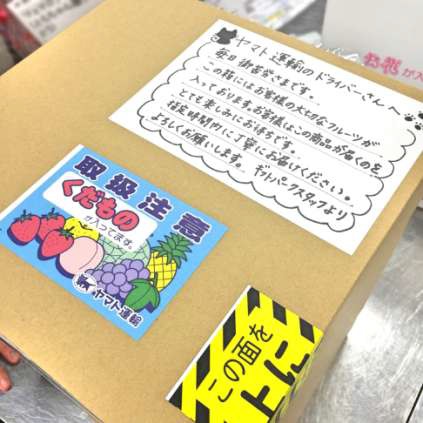 ヤマト運輸のドライバーさんへ
毎日御苦労さまです。
この箱にはお客様の大切なフルーツが
入っております。お客様はこの商品が届くのを
とても楽しみにお待ちです。
指定時間内に丁寧にお届けください。
よろしくお願いします。
ギフトパークスタッフより
取扱注意
くだもの
が入ってます。
ヤマト運輸
この面を
上に